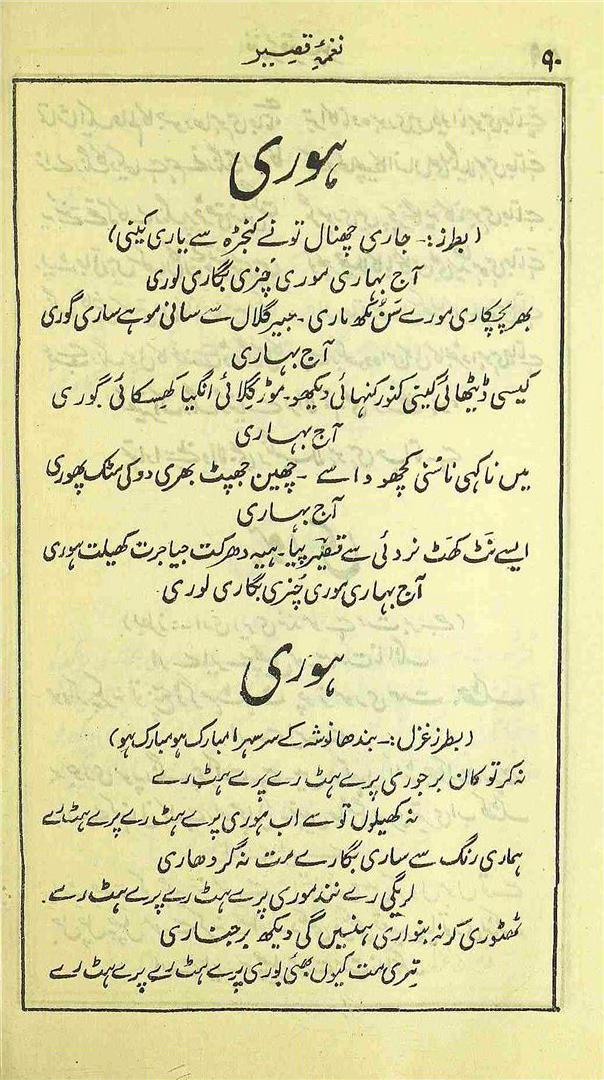 ۹۰
نغمۂ قیصر
ہوری
(بطرز:- جاری چھنال تونے کنجڑہ سے یاری کینی)
آج بہاری موری چُنری بگاری لوری
بھر پچکاری مورے سَن مُکھ ماری - عبیر گلال سے سانی موہے ساری گوری
آج بہاری
کیسی ڈیٹھائی کینی کنور کنہائی دیکھو - موڑ گِلائی انگیا کھسکائی گوری
آج بہاری
میں نا کہی نا سُنی کچھو وا سے - چھین جھپٹ بھری دو کی مٹک پھوری
آج بہاری
ایسے نَٹ کھَٹ نردئی سے قیصر پیا - ہیہ دھرکت جیا جرت کھیلت ہوری
آج بہاری موری چُنری بگاری لوری
ہوری
(بطرز غزل:- بندھا نوشہ کے سر سہرا مبارک ہو مبارک ہو)
نہ کر تو کان برجوری پرے ہٹ رے پرے ہٹ رے
نہ کھیلوں تو سے اب ہوری پرے ہٹ رے پرے ہٹ رے
ہماری رنگ سے ساری بگارے مت نہ گردھاری
لریگی رے نند موری پرے ہٹ رے پرے ہٹ رے
ٹھٹوری کر نہ بنواری ہنسیں گی دیکھ برجناری
تیری مت کیوں بھئی بوری پرے ہٹ رے پرے ہٹ رے